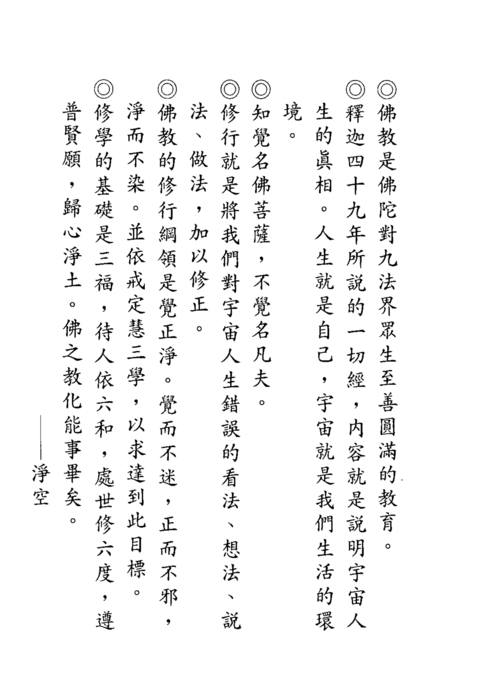 ◎佛教是佛陀對九法界眾生至善圓滿的教育。
◎釋迦四十九年所說的一切經，內容就是說明宇宙人
生的真相。人生就是自己，宇宙就是我們生活的環
境。
◎知覺名佛菩薩，不覺名凡夫。
◎修行就是將我們對宇宙人生錯誤的看法、想法、說
法、做法，加以修正。
◎佛教的修行綱領是覺正淨。覺而不迷，正而不邪，
淨而不染。並依戒定慧三學，以求達到此目標。
◎修學的基礎是三福，待人依六和，處世修六度，遵
普賢願，歸心淨土。佛之教化能事畢矣。
——淨空